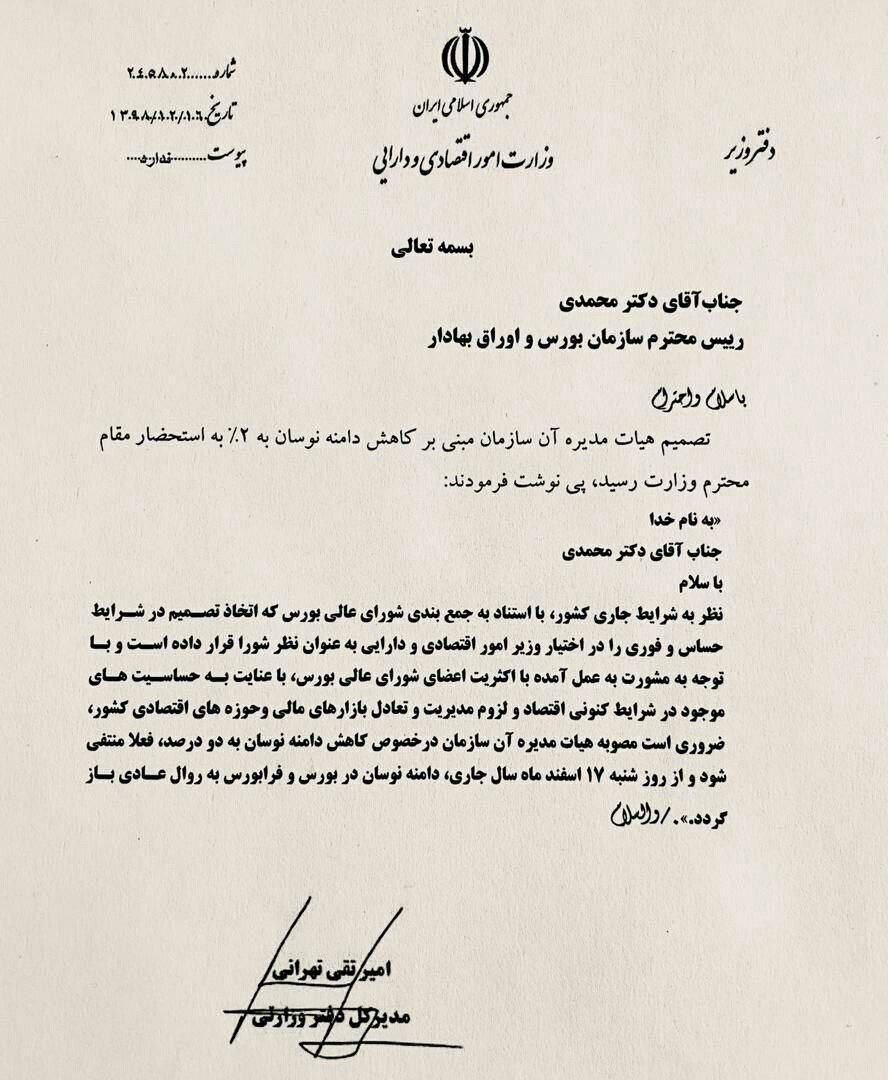 جمهوری اسلامی ایران
وزارت امور اقتصادی و دارایی
دفتر وزیر
شماره......۲۴۵۸۰۰۲
تاریخ
پیوست..........ندارد....
بسمه تعالی
جناب‌آقای دکتر محمدی
رییس محترم سازمان بورس و اوراق بهادار
باسلام واحترام
تصمیم هیات مدیره آن سازمان مبنی بر کاهش دامنه نوسان به ۲٪ به استحضار مقام
محترم وزارت رسید، پی نوشت فرمودند:
«به نام خدا
جناب آقای دکتر محمدی
با سلام
نظر به شرایط جاری کشور، با استناد به جمع بندی شورای عالی بورس که اتخاذ تصمیم در شرایط
حساس و فوری را در اختیار وزیر امور اقتصادی و دارایی به عنوان نظر شورا قرار داده است و با
توجه به مشورت به عمل آمده با اکثریت اعضای شورای عالی بورس، با عنایت به حساسیت های
موجود در شرایط کنونی اقتصاد و لزوم مدیریت و تعادل بازارهای مالی وحوزه های اقتصادی کشور،
ضروری است مصوبه هیات مدیره آن سازمان درخصوص کاهش دامنه نوسان به دو درصد، فعلا منتفی
شود و از روز شنبه ۱۷ اسفند ماه سال جاری، دامنه نوسان در بورس و فرابورس به روال عادی باز
گردد.»./والسلام
امیر تقی تهرانی
مدیرکل دفتر وزارتی